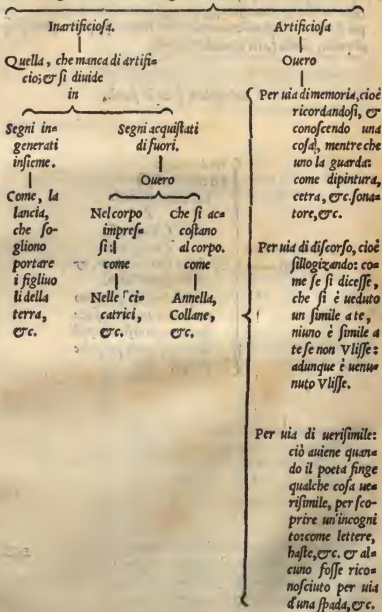 Inartificioſa.
Quella, che manca di artifi=
cio; & ſi diuide
in
Segni in=
generati
inſieme.
Come, la
lancia,
che ſo=
gliono
portare
i figliuo
li della
terra,
&c.
Segni acquiſtati
di fuori.
Ouero
Nel corpo
impreſ=
ſi:
come
Nelle ci=
catrici,
&c.
Che ſi ac=
coſtano
al corpo.
come
Annella,
Collane,
&c.
Artificioſa
Ouero
Per uia di memoria, cioè
ricordandoſi, &
conoſcendo una
coſa, mentre che
uno la guarda:
come dipintura,
cetra, &c. ſona=
tore, &c.
Per uia di diſcorſo, cioè
ſillogizando: co=
me ſe ſi diceſſe,
che ſi è ueduto
un ſimile a te,
niuno è ſimile a
te ſe non Vliſſe:
adunque è uenu=
nuto Vliſſe.
Per uia di ueriſimile:
ciò auiene quan=
do il poeta finge
qualche coſa ue=
riſimile, per ſco=
prire un'incogni
to: come lettere,
haſte, &c. & al=
cuno foſſe rico=
noſciuto per uia
d'una ſpada, &c.